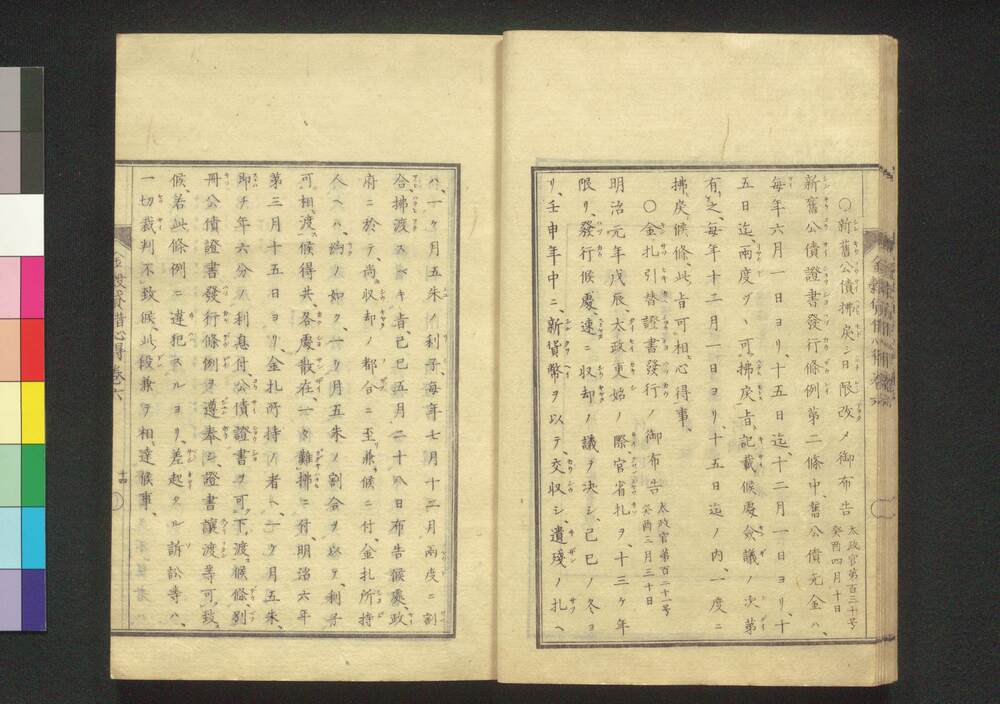 ○新舊公債拂戻シ日限改メ御布告 太政官第百三十号
癸酉四月十日
新舊公債證書發行條例第二條中舊公債元金ハ、
每年六月一日ヨリ、十五日迄、十二月一日ヨリ、十
五日迄、兩度ヅヽ可拂戻旨、記載候處、僉議ノ次第
有之、每年十二月一日ヨリ、十五日迄ノ内、一度ニ
拂戻候條、此旨可相心得事、
○金札引替證書發行ノ御布告 太政官第百二十一号
癸酉三月三十日
明治元年戊辰、太政更始ノ際、官省札ヲ、十三ヶ年
限リ、發行候處、速ニ收却ノ議ヲ決シ、己巳ノ冬ヨ
リ、壬申年中ニ、新貨幣ヲ以テ、交収シ、遺殘ノ札ヘ
ハ、一ヶ月五朱ノ利子、每年七月十二月兩度ニ割
合、拂渡スベキ旨、己巳五月二十八日布告候處、政
府ニ於テ、尚収却ノ都合ニ至リ兼候ニ付、金札所持
人ヘハ、約ノ如ク、一ヶ月五朱ノ割合ヲ以テ、利子
可相渡候得共、各處散在、一々難拂ニ付、明治六年
第三月十五日ヨリ、金札所持ノ者ヘ、一ヶ月五朱、
即チ年六分ノ利息付、公債證書ヲ可下渡候條、別
冊公債證書發行條例ヲ遵奉シ、證書讓渡等可致
候、若此條例ニ違犯スルヨリ、差起タル訴訟等ハ、
一切裁判不致候、此段兼テ相達候事、
心得 卷六
十四